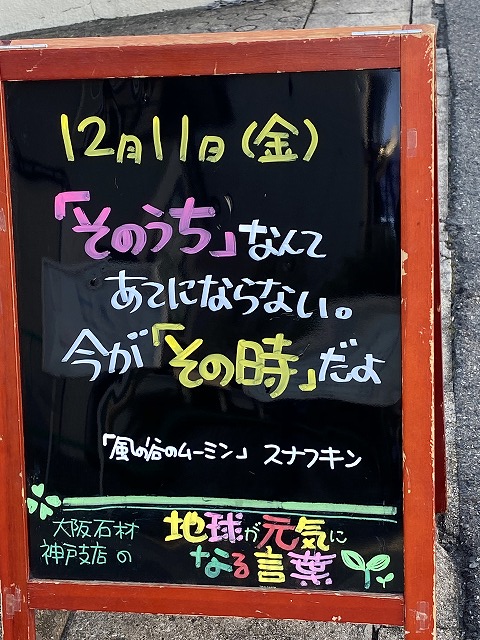 12月11日(金)
「そのうち」なんて
あてにならない。
今が「その時」だよ
「風の谷のムーミン」 スナフキン
大阪石材
神戸支店の
地球が元気に
なる言葉